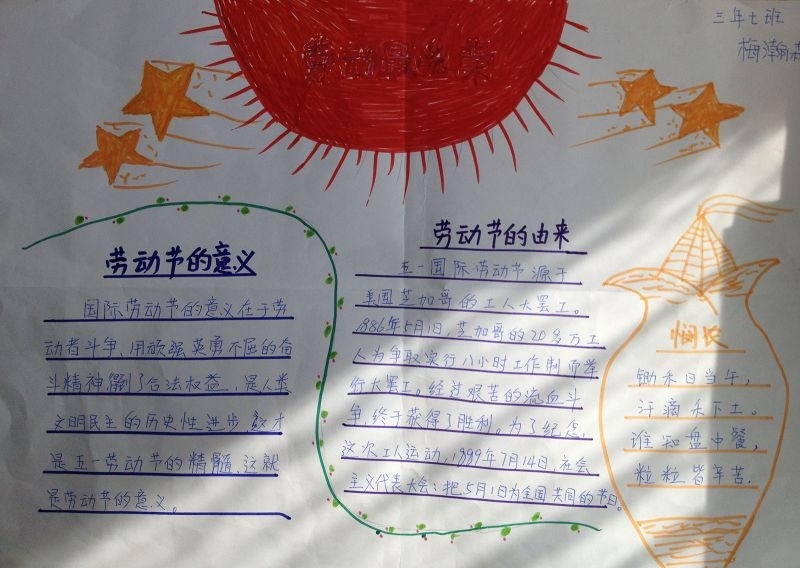 三年七班
梅瀚森
劳动最光荣
劳动节的意义
国际劳动节的意义在于劳
动者斗争,用顽强英勇不屈的奋
斗精神,争到了合法权益,是人类
文明民主的历史性进步,这才
是五一劳动节的精髓,这就
是劳动节的意义。
劳动节的由来
五一国际劳动节源于
美国芝加哥的工人大罢工。
1886年5月1日,芝加哥的20多万工
人为争取实行八小时工作制而举
行大罢工。经过艰苦的流血斗
争,终于获得了胜利。为了纪念,
这次工人运动,1889年7月14日,社会
主义代表大会:把5月1日为全国共同的节日。
悯农
锄禾日当午,
汗滴禾下土。
谁知盘中餐,
粒粒皆辛苦.